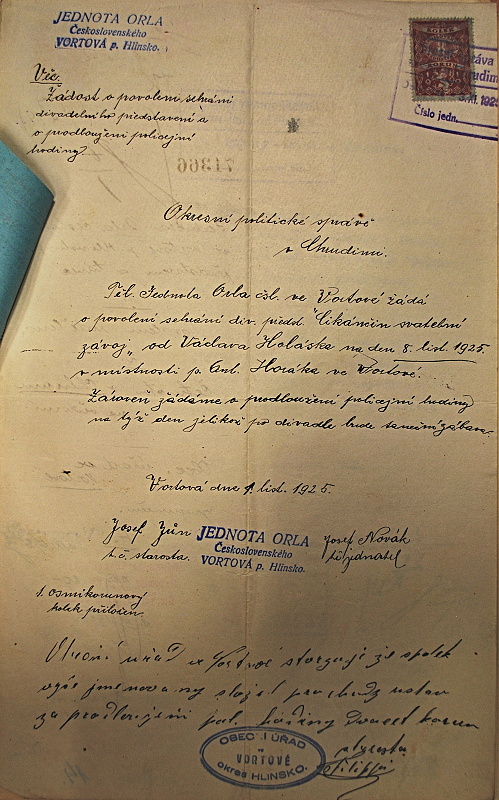 JEDNOTA ORLA
Československého
VORTOVÁ p. Hlinsko.
KOLEK
Věc.
Žádost o povolení sehrání
divadelního představení a
o prodloužení policejní
hodiny
71366
Číslo jedn.
Okresní politické správě
v Chrudimi.
Těl. Jednota Orla čsl. ve Vortové žádá
o povolení sehrání div. předst. "Cikánčin svatební
závoj" od Václava Holáska na den 8. list. 1925.
v místnosti p. Ant. Horáka ve Vortové.
Zároveň žádáme o prodloužení policejní hodiny
na týž den jelikož po divadle bude taneční zábava.
Vortová dne 1. list. 1925.
Josef Zůn
t. č. starosta.
JEDNOTA ORLA
Československého
VORTOVÁ p. Hlinsko.
Josef Novák
t č jednatel
1. osmikorunový
kolek přiložen.
Obecní úřad ve Vortové stvrzuje že spolek
výše jmenovaný složil prochody ústav
za prodloužení pol. hodiny dvacet korun
starosta
Filippi
OBECNÍ ÚŘAD
ve
VORTOVÉ
okres HLINSKO.